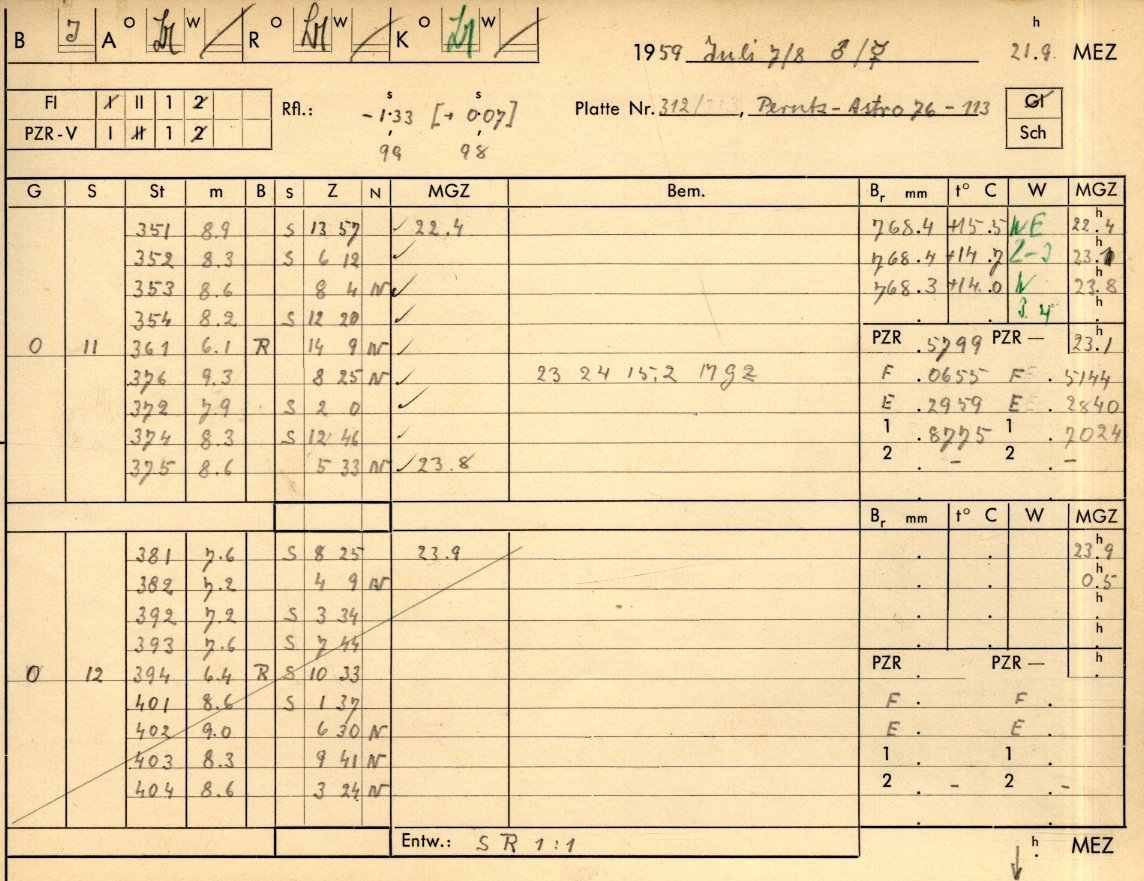 B J A O W R O W K O W h
1959 Juli 7/8 21.9 MEZ
FI I II 1 2 Rfl.: s -1.33 [+ s 0.07] Platte Nr. 312/ , Perutz-Astro 76 - 113 Gl
PZR-V I II 1 2 99 98 Sch
G S St m B S Z N MGZ Bem. Br mm t° C W MGZ
351 8.9 S 13 57 ✓ 22.4 768.4 +15.5 NE 22.4
352 8.3 S 6 12 ✓ 768.4 +14.7 2-3 23.1
353 8.6 8 4 N ✓ 768.3 +14.0 N 23.8
354 8.2 S 12 20 ✓ 3.4 h
0 11 361 6.1 R 14 9 N ✓ PZR .5799 PZR — 23.1
376 9.3 8 25 N ✓ 23 24 15.2 MGZ F .0655 F .5144
372 7.9 S 2 0 ✓ E .2959 E .2840
374 8.3 S 12 46 ✓ 1 .8775 1 .7024
375 8.6 5 33 N ✓ 23.8 2 . - 2 . -
Br mm t° C W MGZ
381 7.6 S 8 25 23.9 23.9
382 7.2 4 9 N 0.5
392 7.2 S 3 34 h
393 7.6 S 7 44 h
0 12 394 6.4 R S 10 33 PZR PZR — h
401 8.6 S 1 37 F . F .
402 9.0 6 30 N E . E .
403 8.3 9 41 N 1 . 1 .
404 8.6 3 24 N 2 . - 2 . -
Entw.: SR 1:1 h MEZ